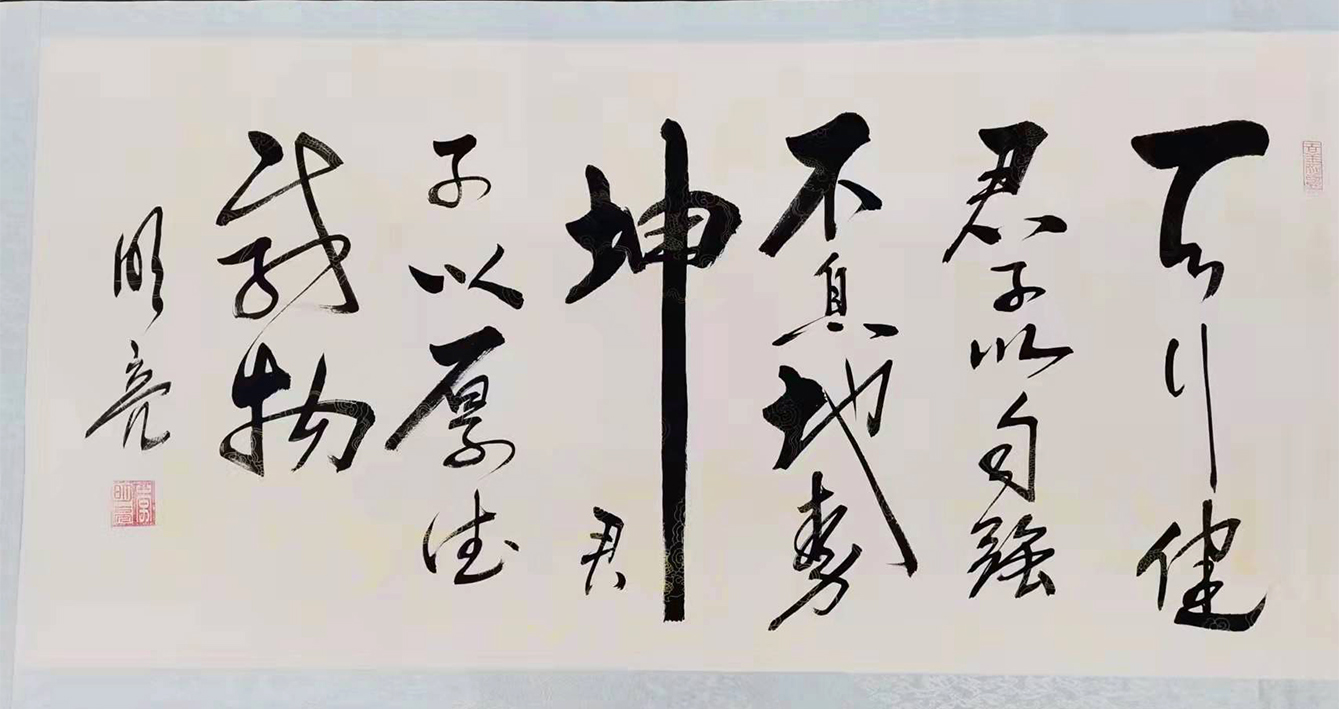 天行健
君子以自強
不息地勢
坤君
子以厚德
載物
明亮